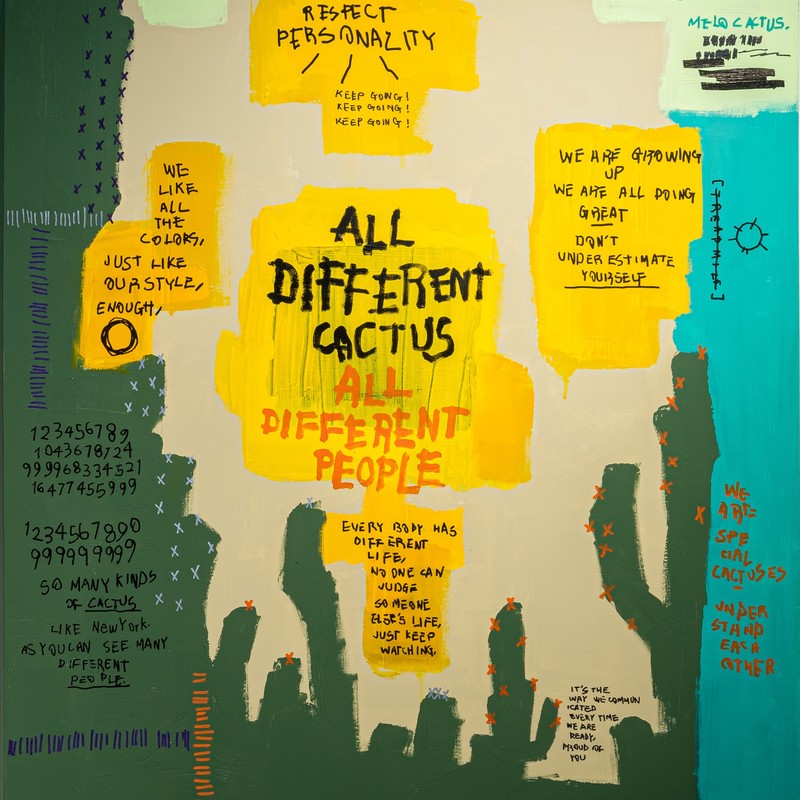 RESPECT
PERSONALITY
KEEP GOING!
KEEP GOING!
KEEP GOING!
MELO CACTUS.
WE
LIKE
ALL
THE
COLORS,
JUST LIKE
OUR STYLE,
ENOUGH,
ALL
DIFFERENT
CACTUS
ALL
DIFFERENT
PEOPLE
WE ARE GROWING
UP
WE ARE ALL DOING
GREAT
DON'T
UNDERESTIMATE
YOURSELF
123456789
1043678724
999968334521
16477455999
1234567890
999999999
SO MANY KINDS
OF CACTUS
LIKE NewYork.
AS YOU CAN SEE MANY
DIFFERENT
PEOPLE.
EVERY BODY HAS
DIFFERENT
LIFE,
NO ONE CAN
JUDGE
SOMEONE
ELSE'S LIFE,
JUST KEEP
WATCHING,
IT'S THE
WAY WE COMMUN
ICATED
EVERY TIME
WE ARE
READY,
PROUD OF
YOU
WE
ARE
SPE
CIAL
CACTUSES
UNDER
STAND
EACH
OTHER